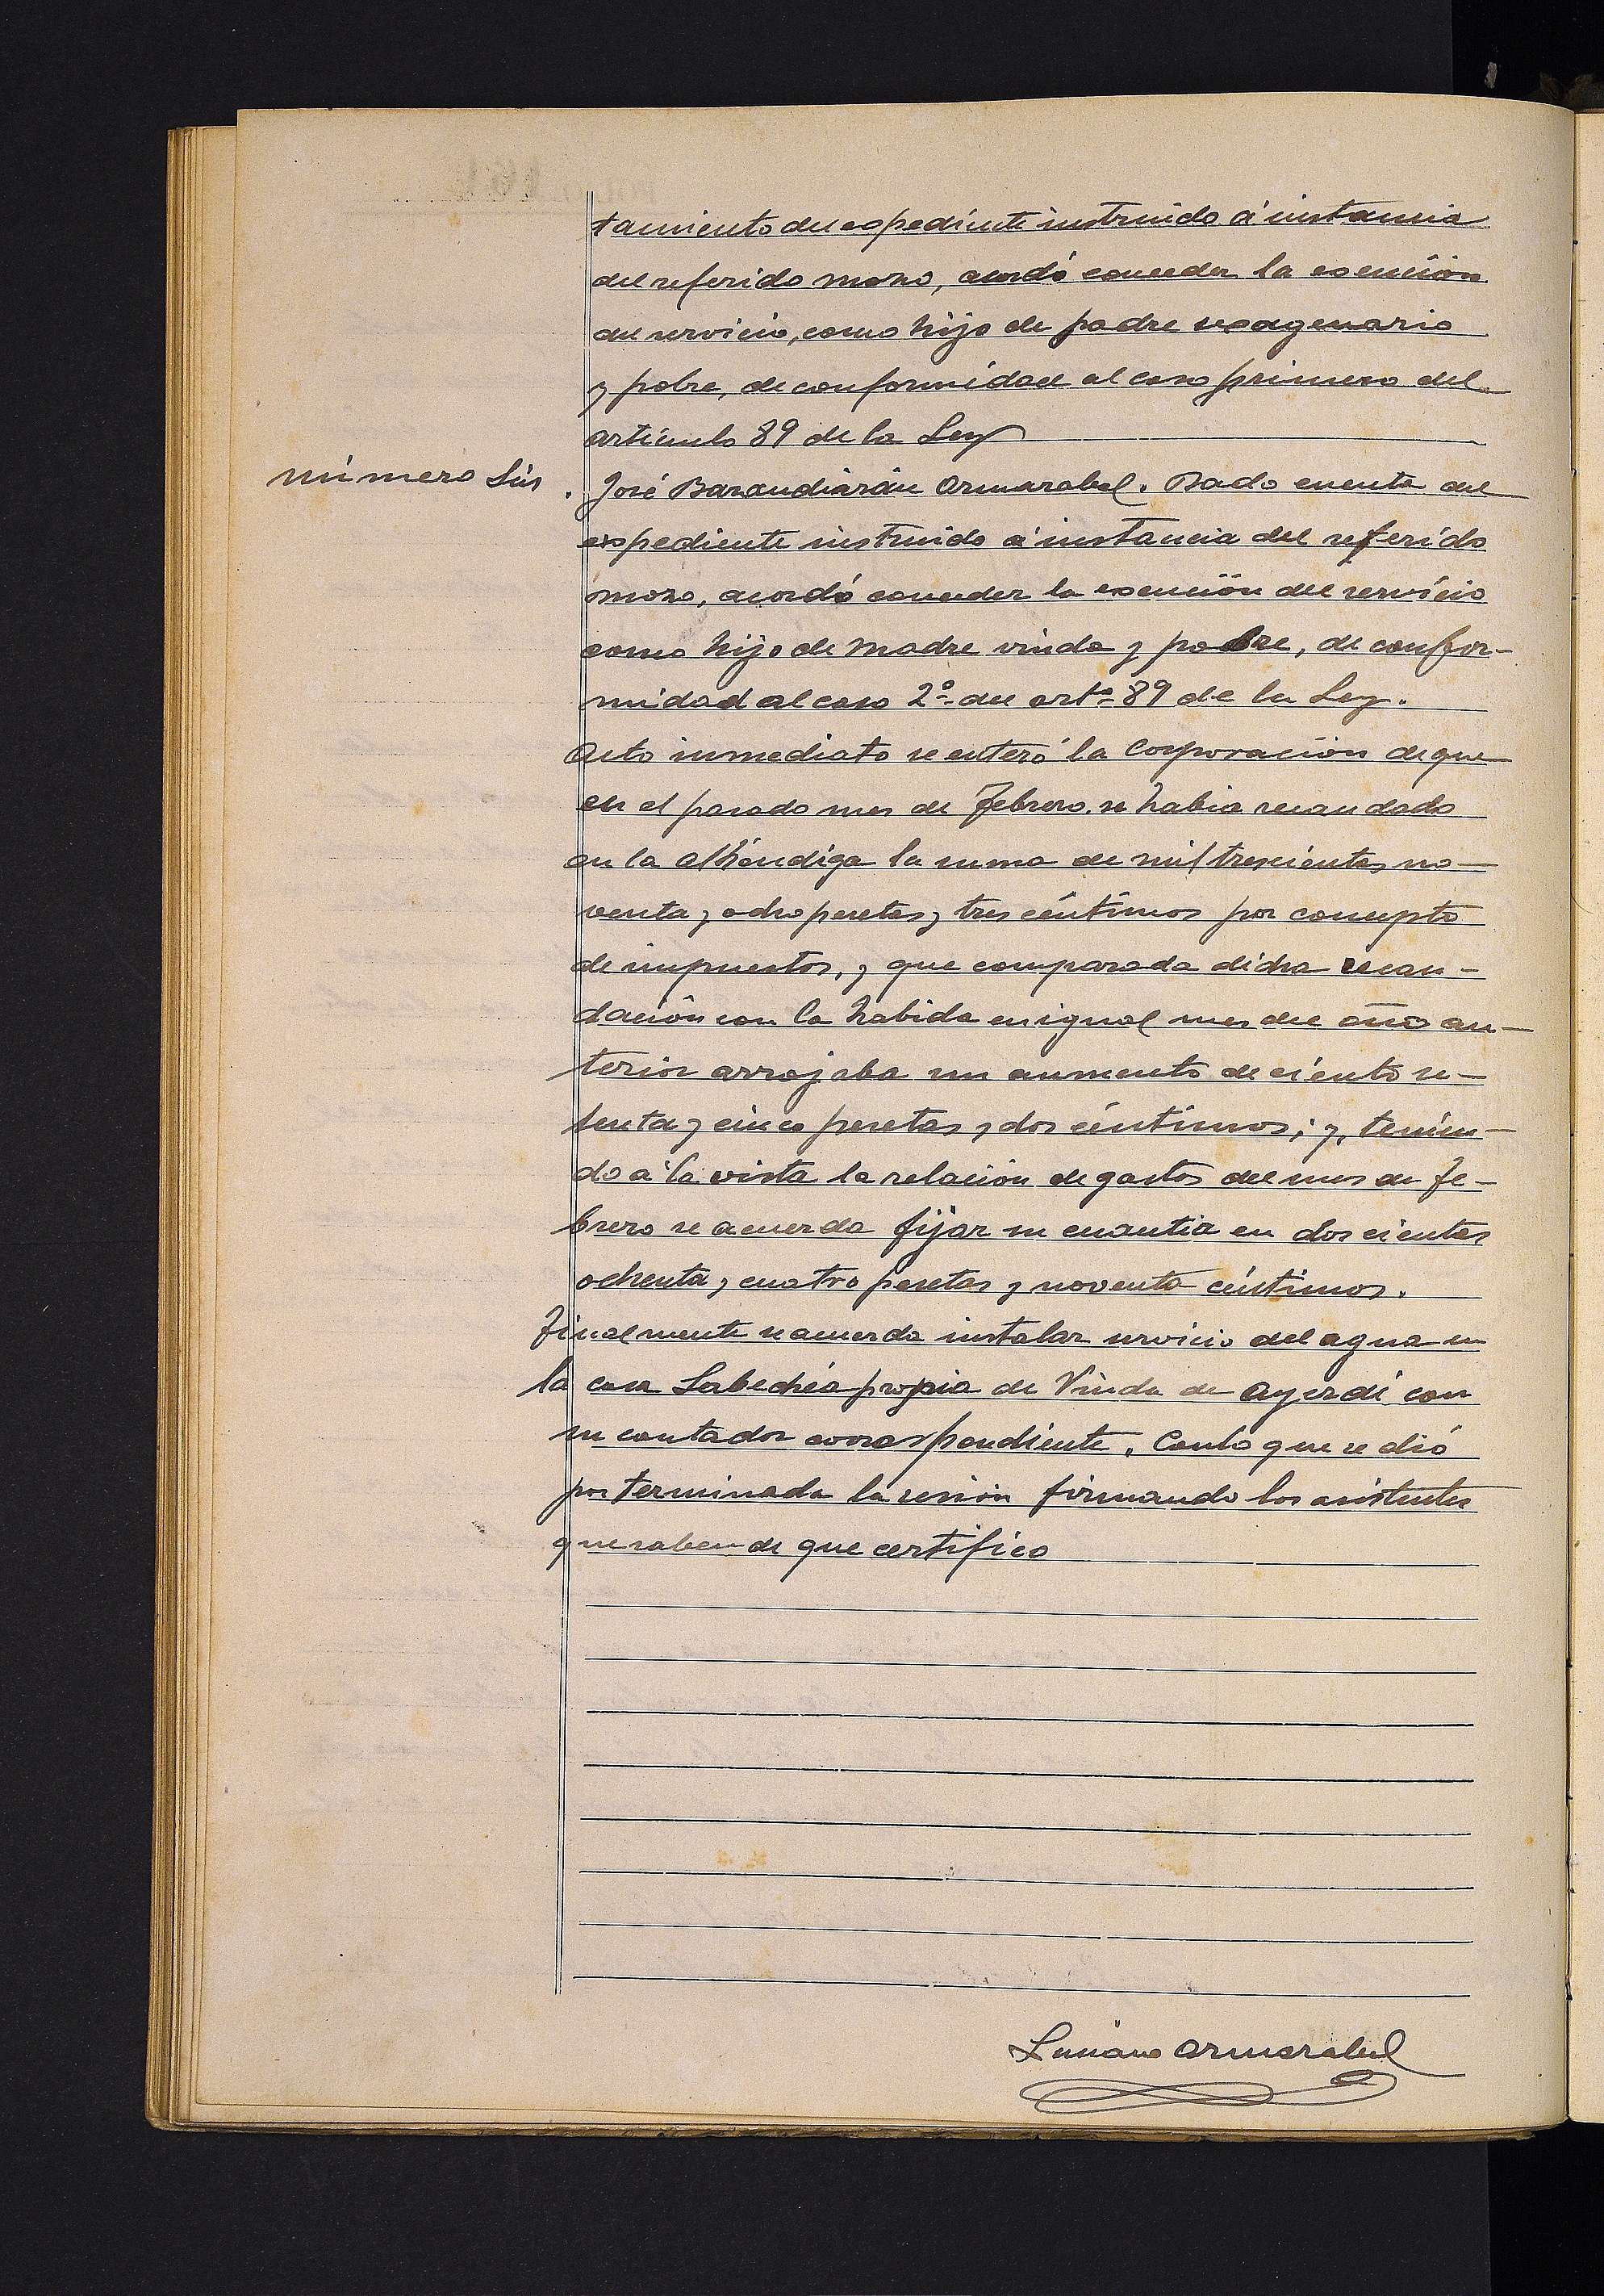 tamiento del expediente instruido á instancia
del referido mozo, acordó conceder la exención
del servicio, como hijo de padre sexagenario
y pobre, de conformidad al caso primero del
artículo 89 de la Ley
número Seis. José Barandiarán Armarabel. Dado cuenta del
expediente instruido á instancia del referido
mozo, acordó conceder la exención del servicio
como hijo de madre viuda y pobre, de confor-
midad al caso 2º del artº 89 de la Ley.
Acto inmediato se enteró la Corporación de que
en el pasado mes de Febrero se habia recaudado
en la alhóndiga la suma de mil trescientas no-
venta y ocho pesetas y tres céntimos por concepto
de impuestos, y que comparada dicha recau-
dación con la habida en igual mes del año an-
terior arrojaba un aumento de ciento se-
senta y cinco pesetas y dos céntimos; y, tenien-
do a la vista la relación de gastos del mes de Fe-
brero se acuerda fijar su cuantia en dos cientas
ochenta y cuatro pesetas y noventa céntimos.
Finalmente se acuerda instalar servicio del agua en
la casa propia de Viuda de Ayerdi con
su contador correspondiente. Conlo que se dió
por terminada la sesión firmando los asistentes
que saben de que certifico
Luciano Armarabel